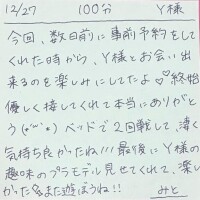 12/27 100分 Y様
今回、数日前に事前予約をして
くれた時から、Y様とお会い出
来るのを楽しみにしてたよ♡♥終始
優しく接してくれて本当にありがと
う(*´꒳`*)ベッドで2回戦して、凄く
気持ち良かったね!!!最後にY様の
趣味のプラモデル見せてくれて、楽し
かった また遊ぼうね!!
みと